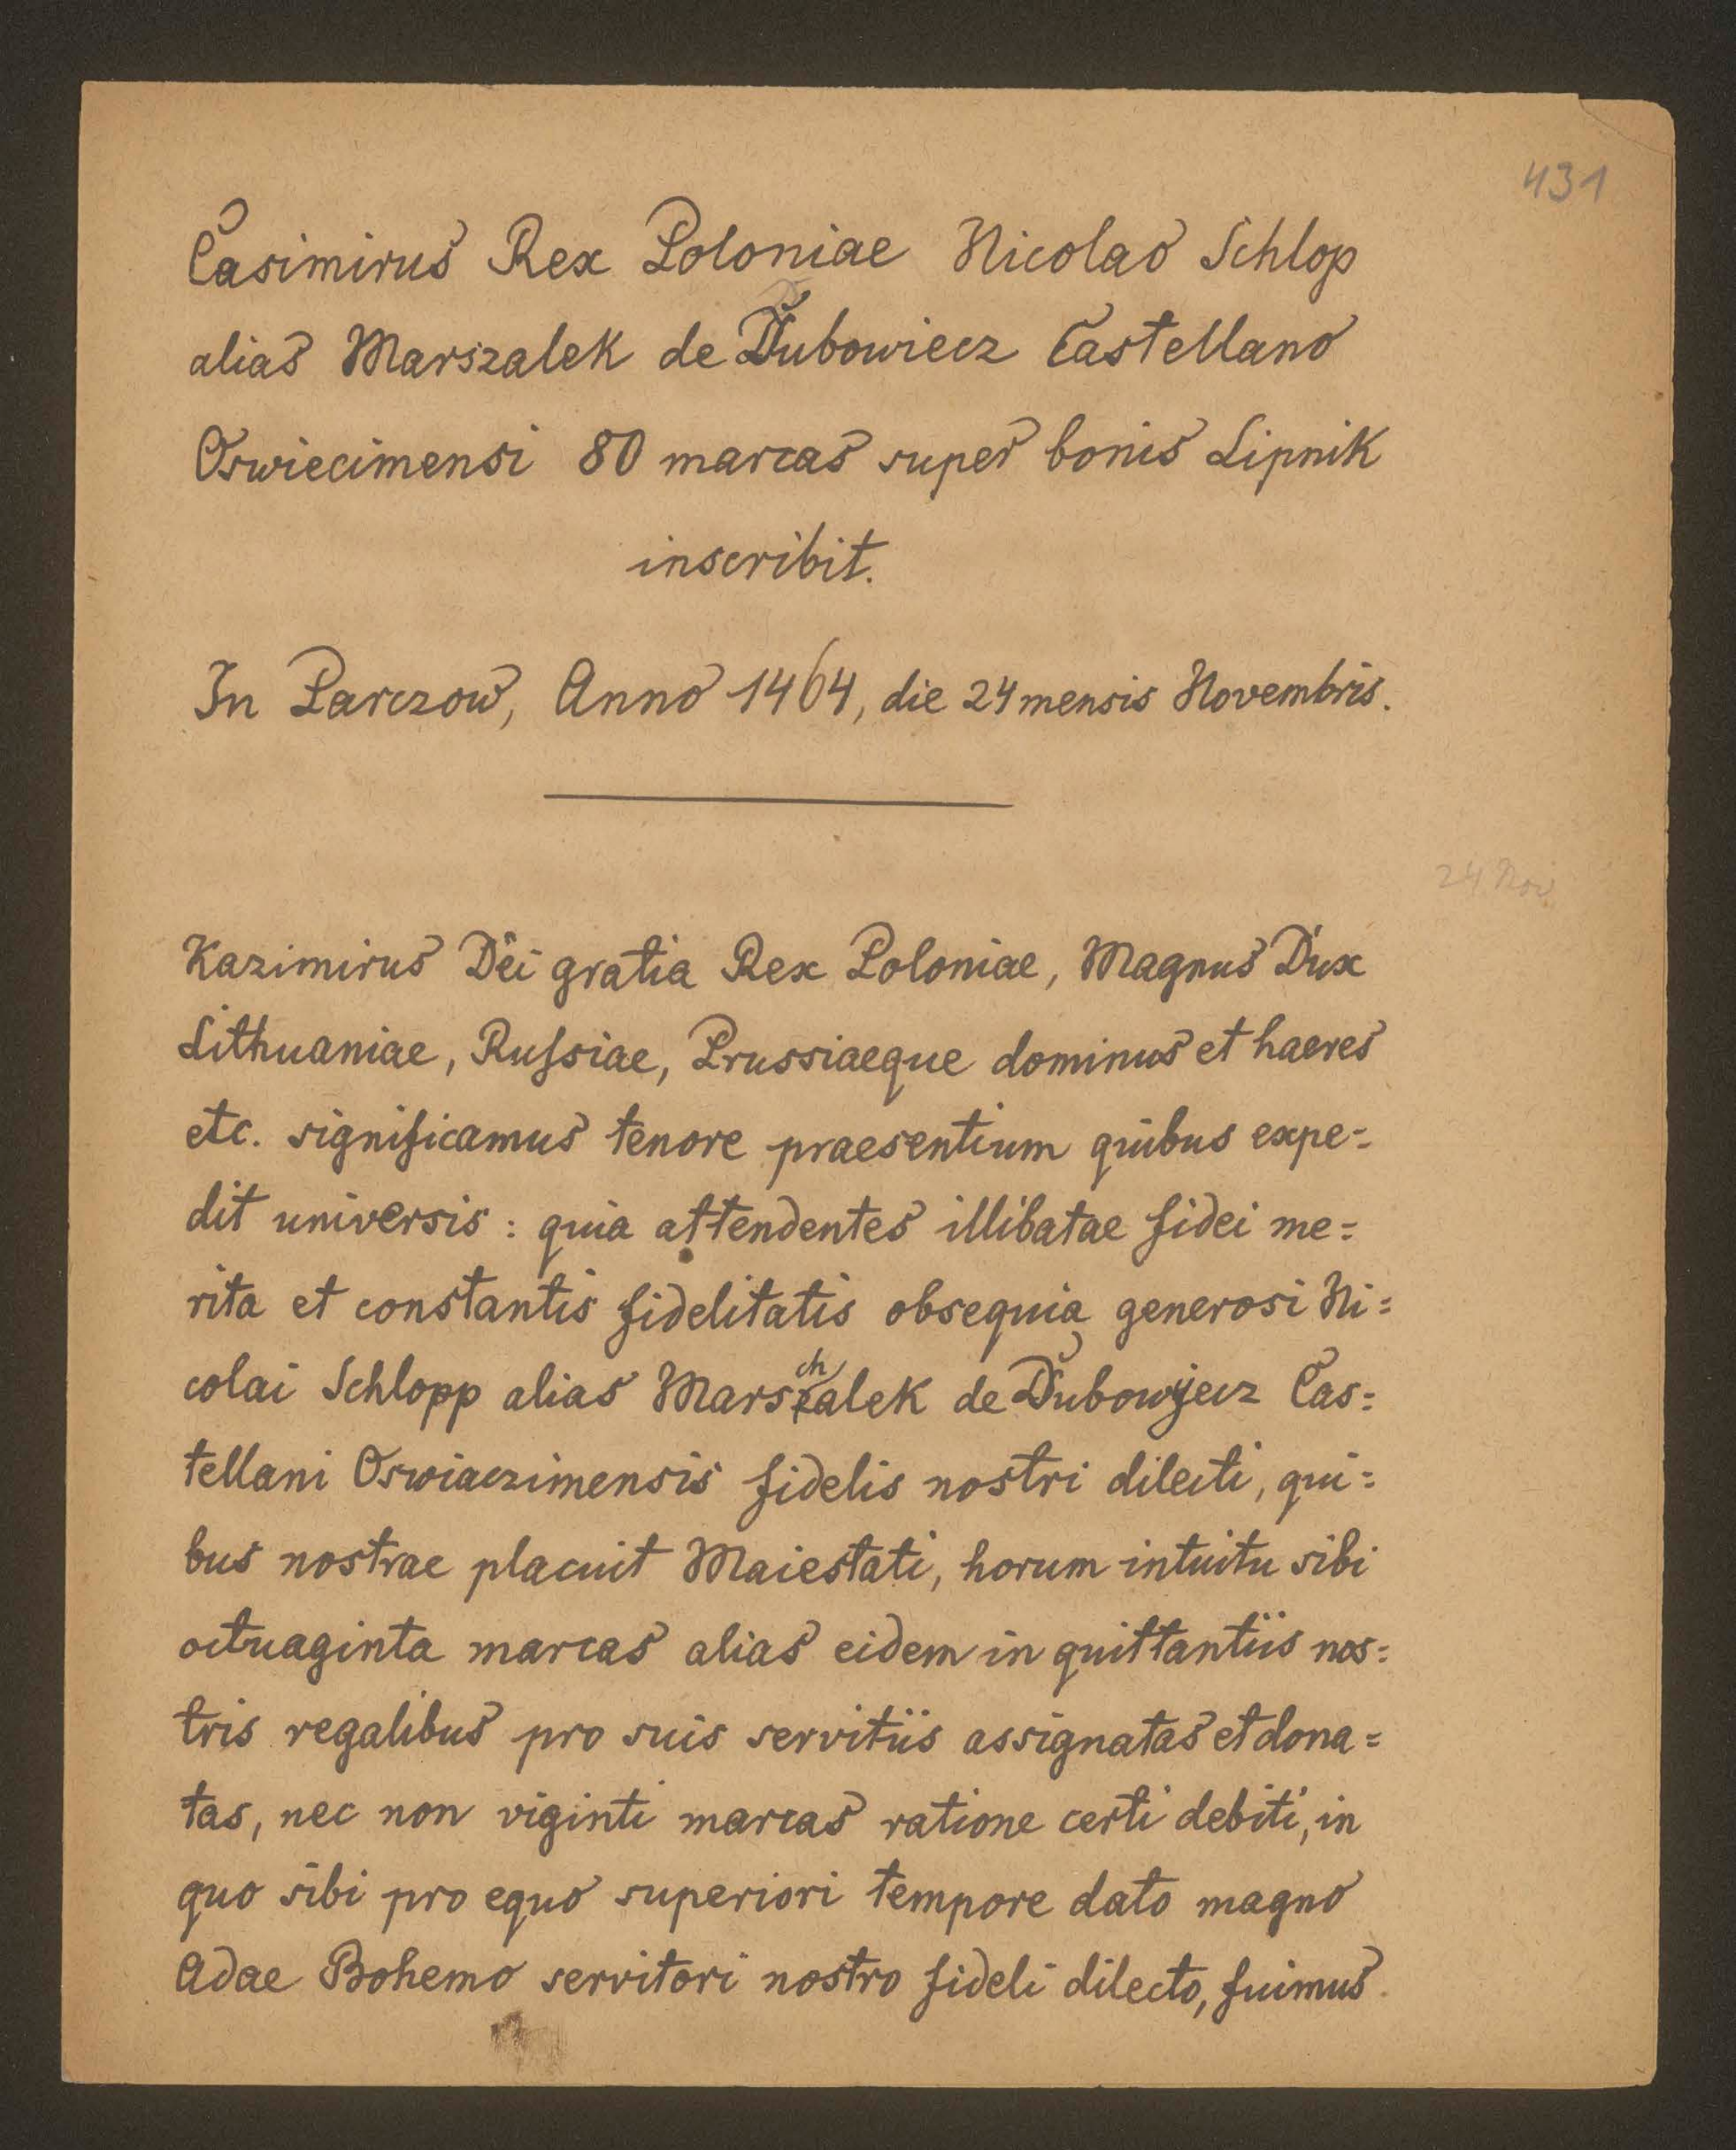 431
Casimirus Rex Poloniae Nicolao Schlop
alias Marszalek de Dubowiecz Castellano
Oswiecimensi 80 marcas super bonis Lipnik
inscribit.
In Parczow, Anno 1464, die 24 mensis Novembris.
24 Nov
Kazimirus Dei gratia Rex Poloniae, Magnus Dux
Lithuaniae, Russiae, Prussiaeque dominus et haeres
etc. significamus tenore praesentium quibus expe=
dit universis: quia attendentes illibatae fidei me=
rita et constantis fidelitatis obsequia generosi Ni=
colai Schlopp alias Marschalek de Dubowyecz Cas=
tellani Oswiaczimensis fidelis nostri dilecti, qui=
bus nostrae placuit Maiestati, horum intuitu sibi
octuaginta marcas alias eidem in quittantiis nos=
tris regalibus pro suis servitiis assignatas et dona=
tas, nec non viginti marcas ratione certi debiti, in
quo sibi pro equo superiori tempore dato magno
Adae Bohemo servitori nostro fideli dilecto, fuimus